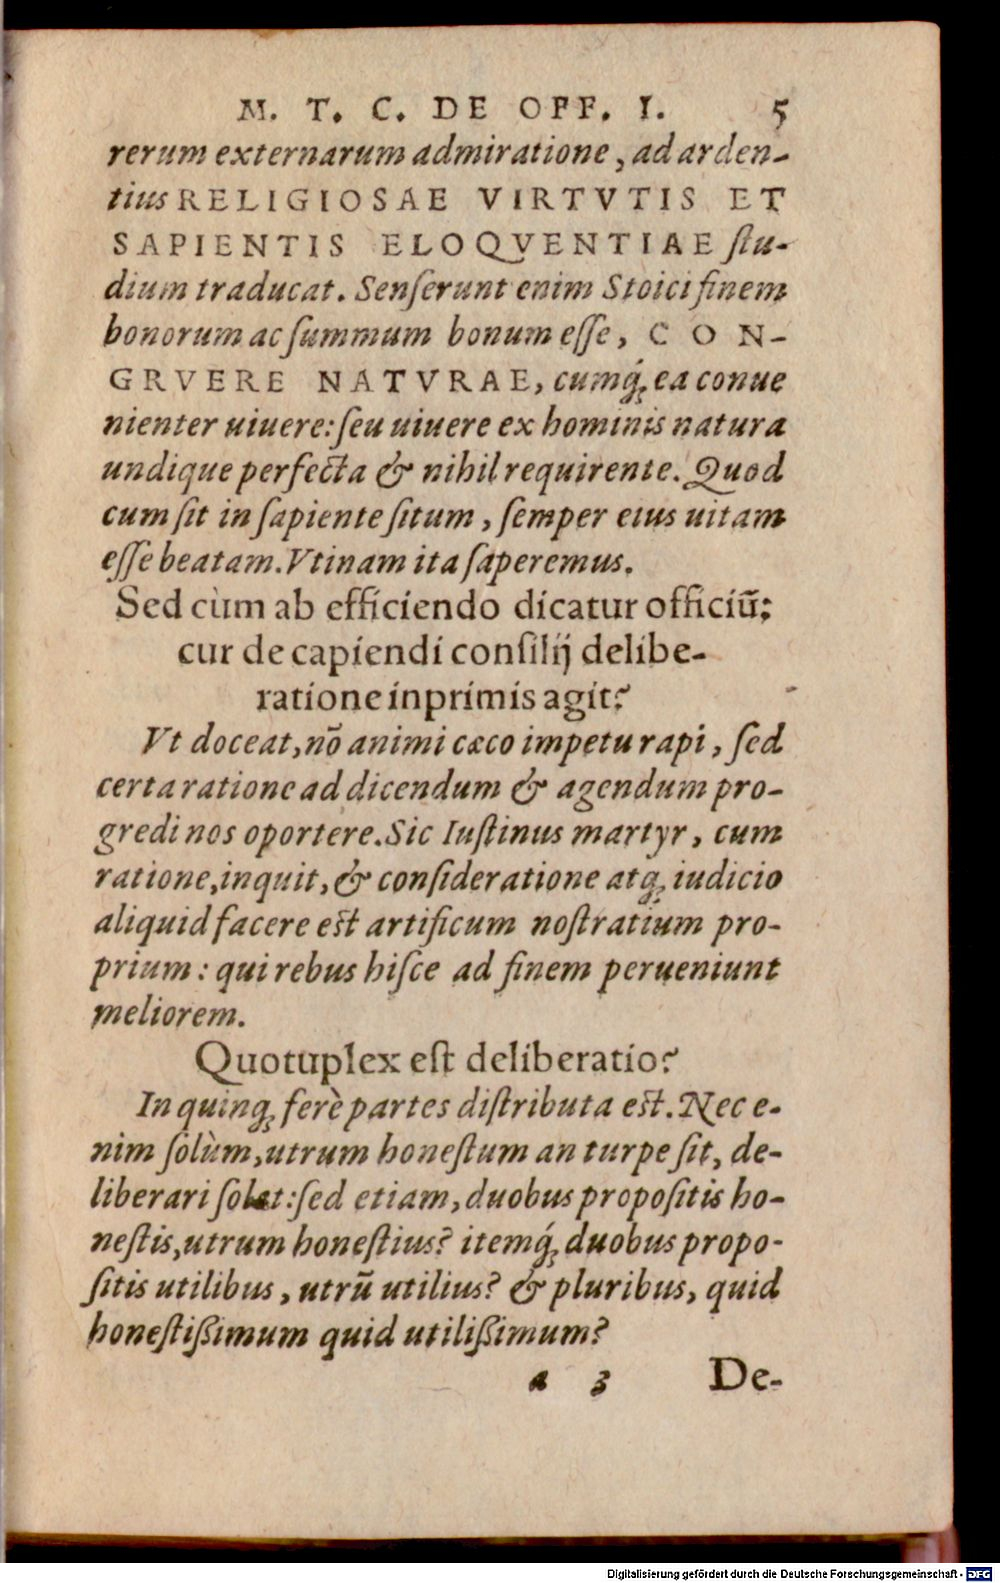 M. T. C. DE OFF. I. 5
rerum externarum admiratione, ad arden-
tius RELIGIOSAE VIRTVTIS ET
SAPIENTIS ELOQVENTIAE ſtu-
dium traducat. Senſerunt enim Stoici finem
bonorum ac ſummum bonum eſſe, CON-
GRVERE NATVRAE, cumq́ꝫ ea conue
nienter uiuere: ſeu uiuere ex hominis natura
undique perfecta & nihil requirente. Quod
cum ſit in ſapiente ſitum, ſemper eius uitam
eſſe beatam. Vtinam ita ſaperemus.
Sed cùm ab efficiendo dicatur officiū;
cur de capiendi conſilij delibe-
ratione inprimis agit?
Vt doceat, nō animi cæco impetu rapi, ſed
certa ratione ad dicendum & agendum pro-
gredi nos oportere. Sic Iuſtinus martyr, cum
ratione, inquit, & conſideratione atqꝫ iudicio
aliquid facere eſt artificum noſtratium pro-
prium: qui rebus hiſce ad finem perueniunt
meliorem.
Quotuplex eſt deliberatio?
In quinqꝫ ferè partes diſtributa eſt. Nec e-
nim ſolùm, utrum honeſtum an turpe ſit, de-
liberari ſolet: ſed etiam, duobus propoſitis ho-
neſtis, utrum honeſtius? itemq́ꝫ duobus propo-
ſitis utilibus, utrū utilius? & pluribus, quid
honeſtißimum quid utilißimum?
a 3 De-
Digitalisierung gefördert durch die Deutsche Forschungsgemeinschaft - DFG